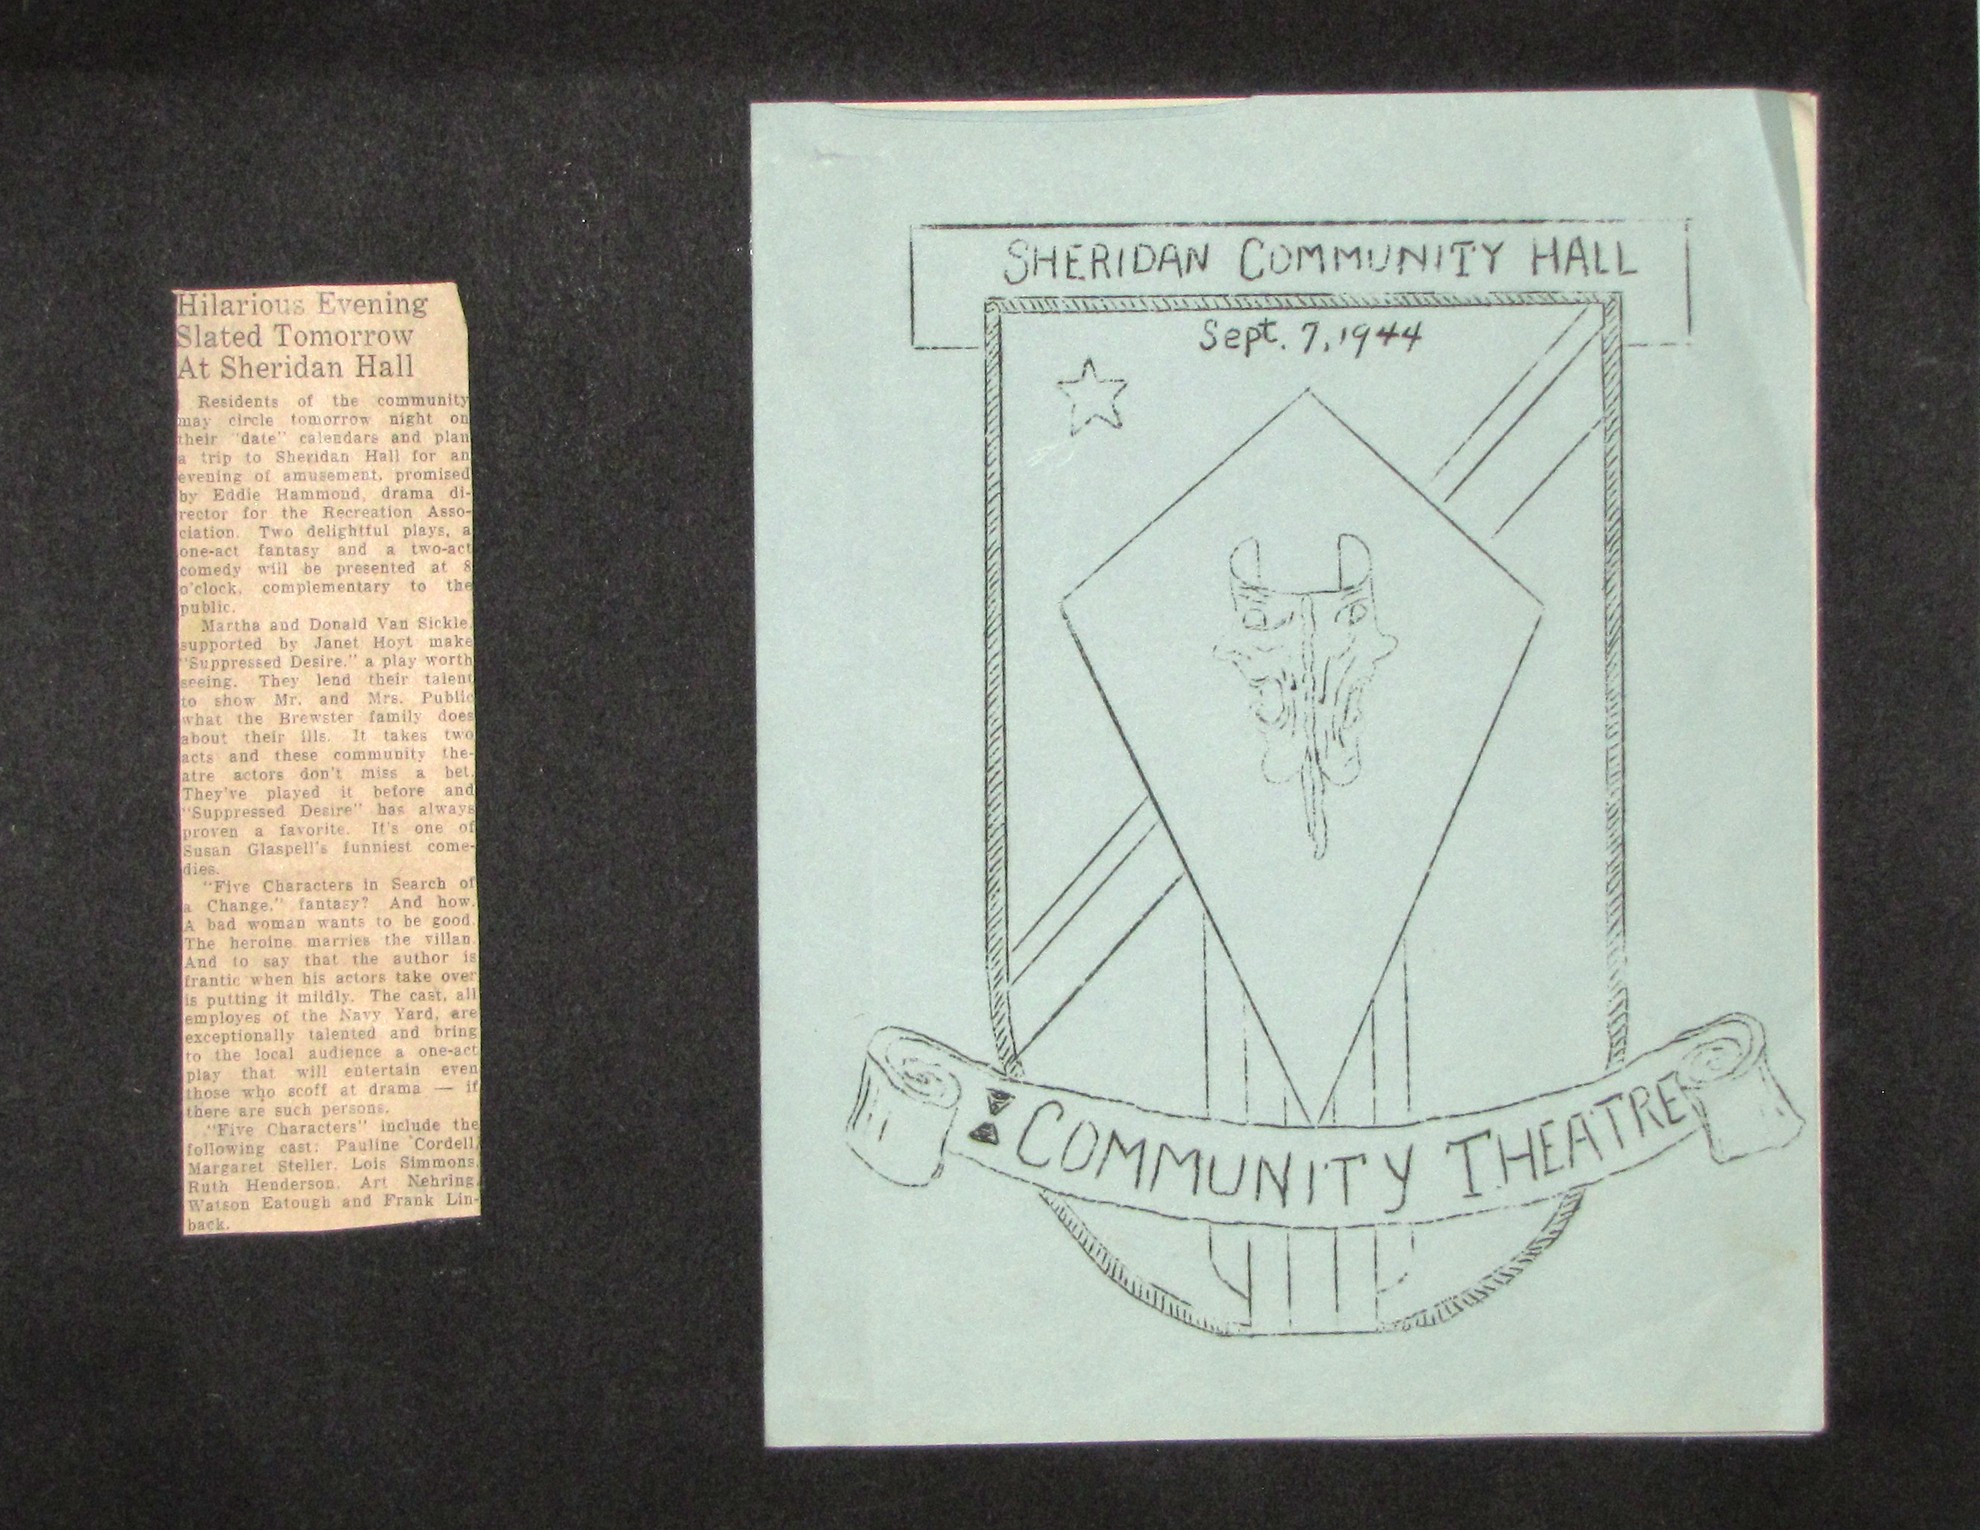 Hilarious Evening
Slated Tomorrow
At Sheridan Hall
Residents of the community
may circle tomorrow night on
their "date" calendars and plan
a trip to Sheridan Hall for an
evening of amusement, promised
by Eddie Hammond, drama di-
rector for the Recreation Asso-
ciation. Two delightful plays, a
one-act fantasy and a two-act
comedy will be presented at 8
o'clock, complementary to the
public.
Martha and Donald Van Sickle,
supported by Janet Hoyt make
"Suppressed Desire," a play worth
seeing. They lend their talent
to show Mr. and Mrs. Public
what the Brewster family does
about their ills. It takes two
acts and these community the-
atre actors don't miss a bet.
They've played it before and
"Suppressed Desire" has always
proven a favorite. It's one of
Susan Glaspell's funniest come-
dies.
"Five Characters in Search of
a Change," fantasy? And how.
A bad woman wants to be good.
The heroine marries the villan.
And to say that the author is
frantic when his actors take over
is putting it mildly. The cast, all
employes of the Navy Yard, are
exceptionally talented and bring
to the local audience a one-act
play that will entertain even
those who scoff at drama — if
there are such persons.
"Five Characters" include the
following cast: Pauline Cordell,
Margaret Steller, Lois Simmons,
Ruth Henderson, Art Nehring,
Watson Eatough and Frank Lin-
back.
SHERIDAN COMMUNITY HALL
Sept. 7, 1944
COMMUNITY THEATRE